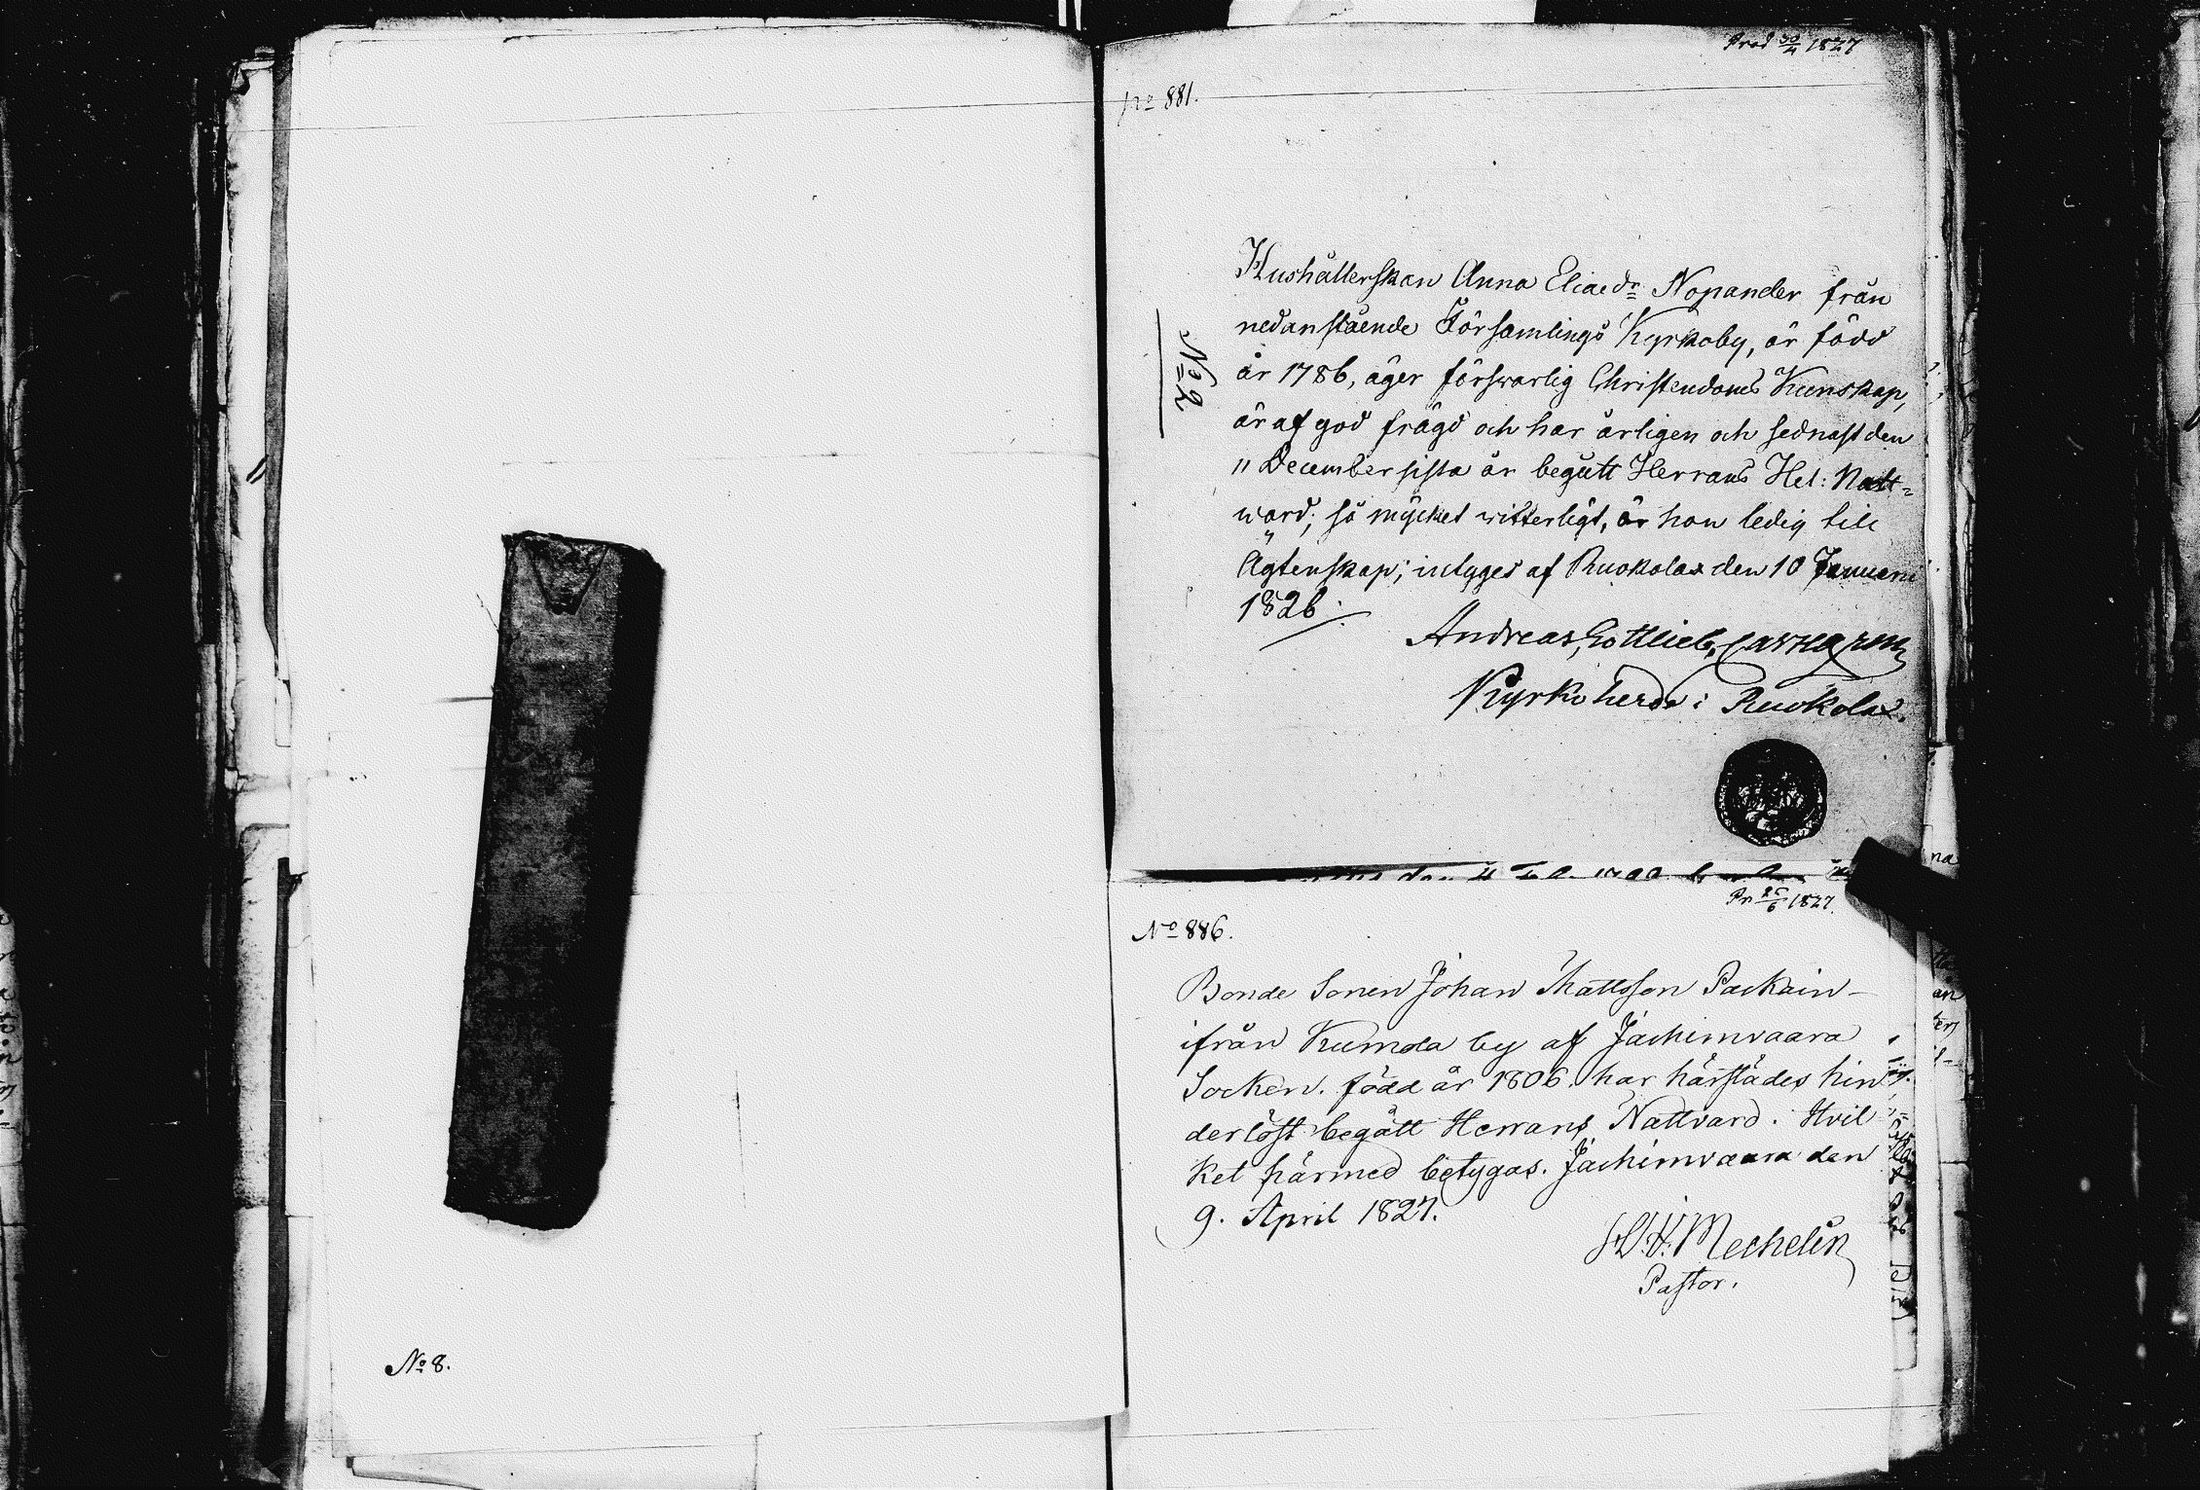 No 8.
Prod 30/4 1827
No 881.
No 2
Hushållerskan Anna Eliaedr Nopander från
nedanstående Församlings Kyrkoby, är född
år 1786, äger förswarlig Christendoms Kunskap,
är af god frägd och har årligen och sednast den
11 December sista år begått Herrans Hel: Natt=
ward; så mycket witterligt, är hon ledig till
Ägtenskap; intyges af Ruokolax den 10 Januarii
1826.
Andreas, Gottlieb,
Kyrkoherde i Ruokolax.
Pr 25/6 1827.
No 886.
Bonde Sonen Johan Mattsson Packain-
ifrån Kumola by af Jachimvaara
Socken. född år 1806. har härstädes hin
derlöst begått Herrans Nattvard. Hvil
ket härmed betygas. Jachimvaara den
9. April 1827.
Mechelin
Pastor.